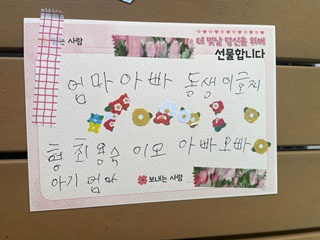 받는 사람
더 빛날 당신을 위해
선물합니다
엄마 아빠 동생 이호지
형 최용숙 이모 아빠 오빠
아기 엄마
보내는 사람